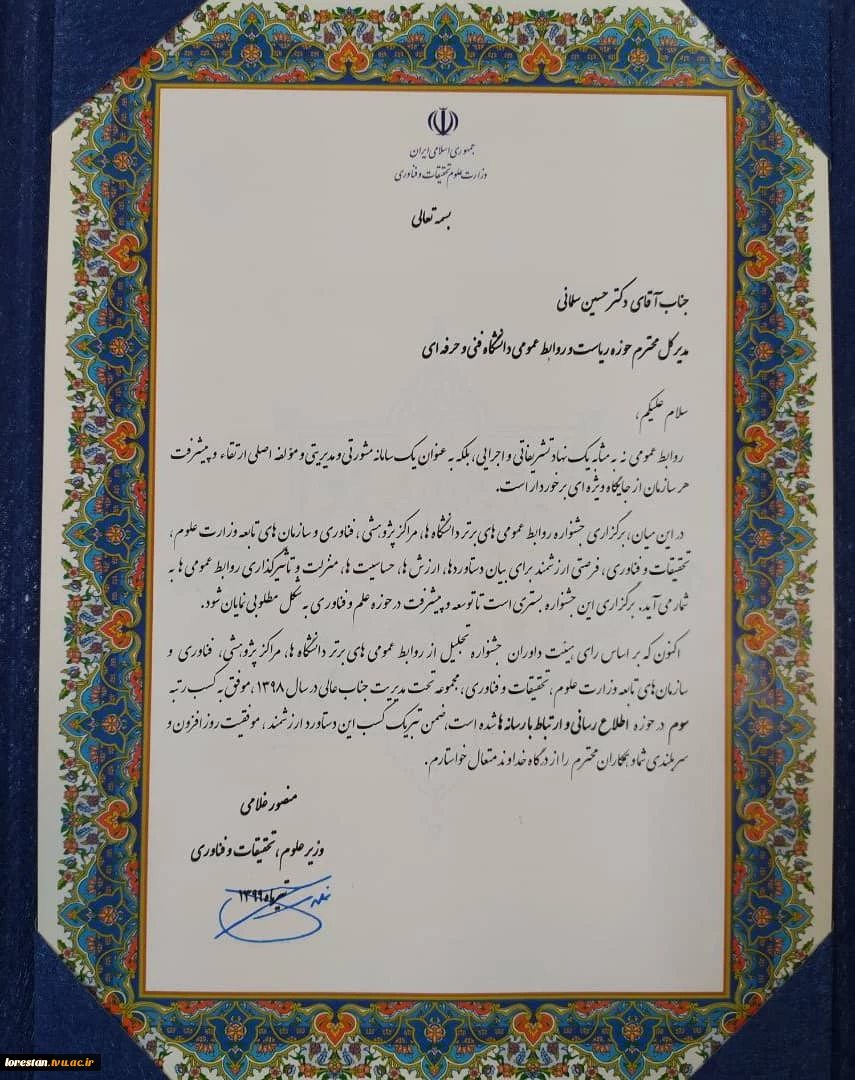 جمهوری اسلامی ایران
وزارت علوم تحقیقات و فناوری
بسمه تعالی
جناب آقای دکتر حسین سلمانی
مدیر کل محترم حوزه ریاست و روابط عمومی دانشگاه فنی و حرفه ای
سلام علیکم،
روابط عمومی نه به مثابه یک نهاد تشریفاتی و اجرایی، بلکه به عنوان یک سامانه مشورتی و مدیریتی و مؤلفه اصلی ارتقاء و پیشرفت
هر سازمان از جایگاه ویژه ای برخوردار است.
در این میان، برگزاری جشنواره روابط عمومی های برتر دانشگاه ها، مراکز پژوهشی، فناوری و سازمان های تابعه وزارت علوم،
تحقیقات و فناوری، فرصتی ارزشمند برای بیان دستاوردها، ارزش ها، حساسیت ها، منزلت و تأثیرگذاری روابط عمومی ها به
شمار می آید. برگزاری این جشنواره بستری است تا توسعه و پیشرفت در حوزه علم و فناوری به شکل مطلوبی نمایان شود.
اکنون که بر اساس رای هیئت داوران جشنواره تجلیل از روابط عمومی های برتر دانشگاه ها، مراکز پژوهشی، فناوری و
سازمان های تابعه وزارت علوم، تحقیقات و فناوری، مجموعه تحت مدیریت جناب عالی در سال ۱۳۹۸، موفق به کسب رتبه
سوم در حوزه اطلاع رسانی و ارتباط با رسانه ها شده است، ضمن تبریک کسب این دستاورد ارزشمند، موفقیت روز افزون و
سربلندی شما و همکاران محترم را از درگاه خداوند متعال خواستارم.
منصور غلامی
وزیر علوم، تحقیقات و فناوری
تیرماه ۱۳۹۹
lorestan.tvu.ac.ir